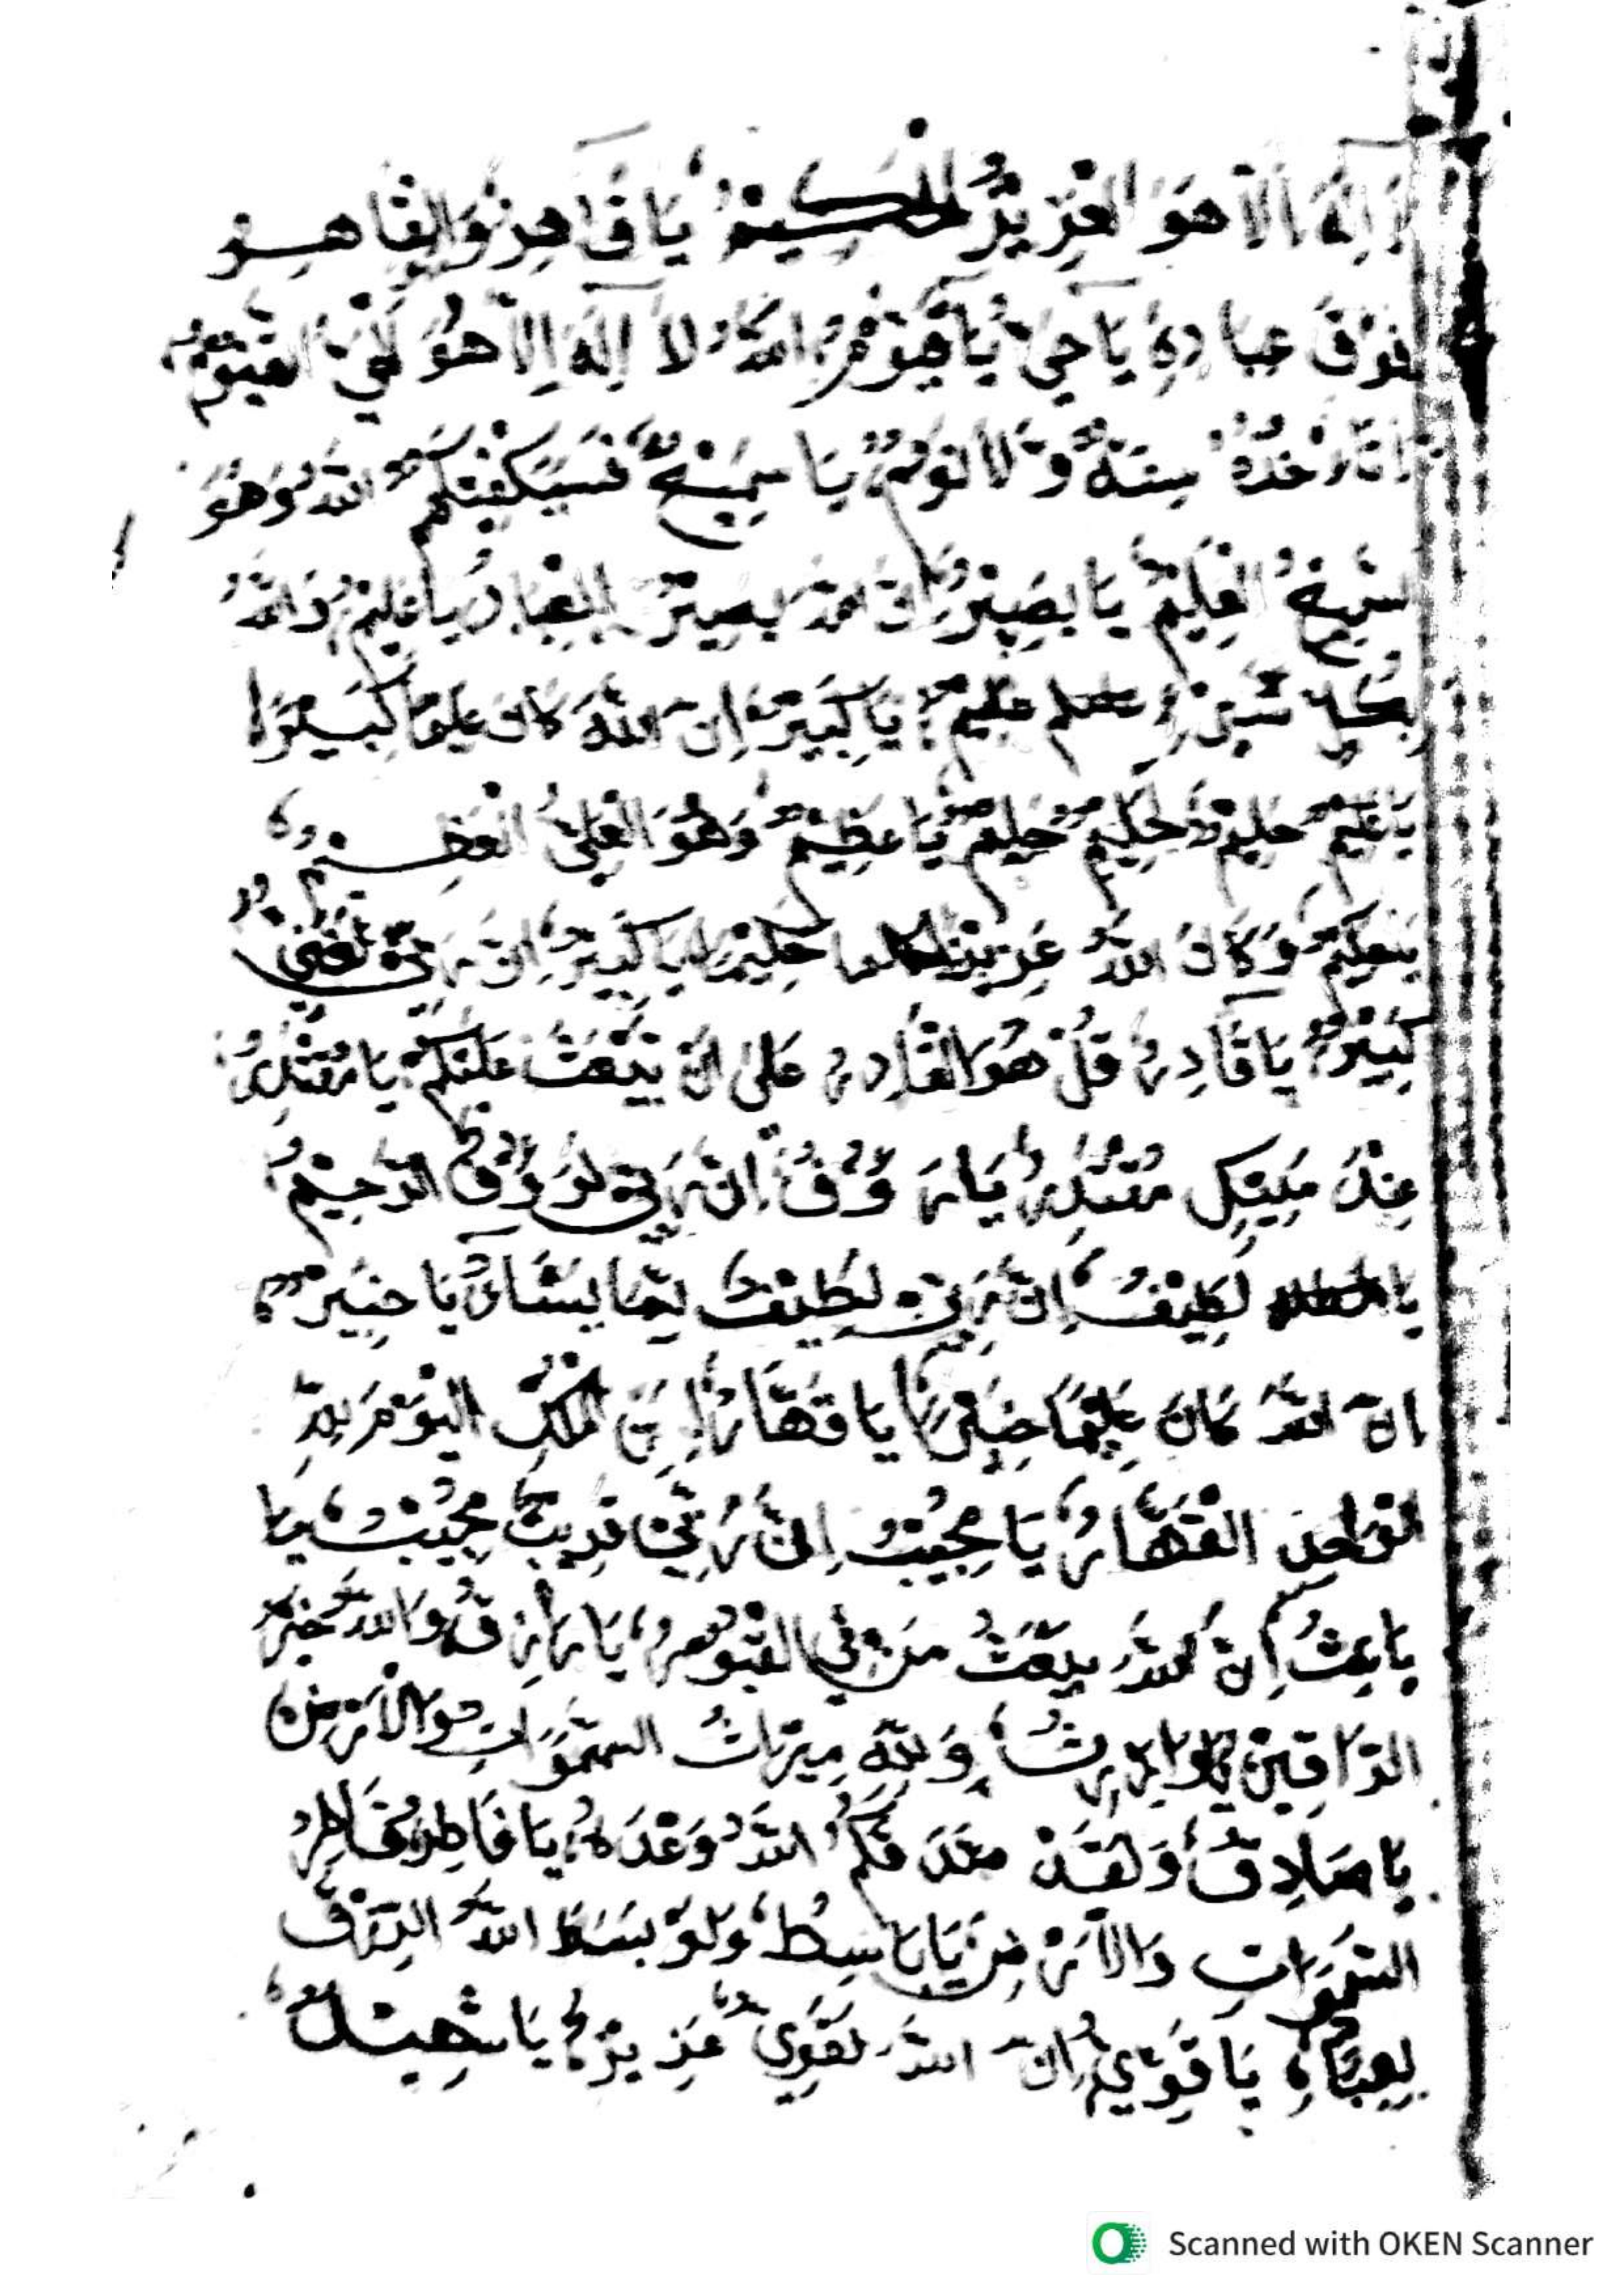 لَا اِلَهَ اِلَّا هُوَ الْعَزِيْزُ الْحَكِيْمُ يَا قَاهِرُ وَالقَاهِرُ
فَوْقَ عِبَادِهِ يَا حَيُّ يَا قَيُّوْمُ اللهُ لَا اِلَهَ اِلَّا هُوَ لْحَيُّ القَيُّوْمُ
لَا تَأْخُذُهُ سِنَةٌ وَّلَا نَوْمٌ يَا سَمِيْعُ فَسَيَكْفِيْكَهُمُ اللهُ وَهُوَ
لسَّمِيْعُ الْعَلِيْمُ يَا بَصِيْرُ اِنَّ اللهَ بَصِيْرٌ بِالْعِبَادِ يَا عَلِيْمُ وَاللهُ
بِكُلِّ شَيْئٍ عَلِيْمٌ يَا كَبِيْرُ اِنَّ اللهَ كَانَ عَلِيًّا كَبِيْرًا
يَا عَلِيْمُ حَلِيْمٌ حَكِيْمٌ حَلِيْمٌ يَا عَظِيْمُ وَهُوَ الْعَلِيُّ الْعَظِيْمُ
وَكَانَ اللهُ عَزِيْزًا حَكِيْمًا يَا كَبِيْرُ اِنَّ رَبِّيْ لَغَنِيٌّ
كَبِيْرٌ يَا قَادِرُ قُلْ هُوَ القَادِرُ عَلَى اَنْ يَّبْعَثَ عَلَيْكُمْ يَا مُقْتَدِرُ
عِنْدَ مَلِيْكٍ مُقْتَدِرٍ يَا رَءُوْفُ اِنَّ رَبِّيْ لَرَءُوْفٌ الرَّحِيْمُ
يَا لَطِيْفُ اِنَّ رَبِّيْ لَطِيْفٌ لِّمَا يَشَاءُ يَا خَبِيْرُ
اِنَّ اللهَ كَانَ عَلِيْمًا خَبِيْرًا يَا قَهَّارُ لِمَنِ الْمُلْكُ الْيَوْمَ لِلهِ
الْوَاحِدِ الْقَهَّارُ يَا مُجِيْبُ اِنَّ رَبِّيْ قَرِيْبٌ مُجِيْبٌ يَا
يَا بَعِثُ اِنَّ اللهَ يَبْعَثُ مَنْ فِي الْقُبُوْرِ يَا رَازِقُ وَاللهُ خَيْرُ
الرَّازِقِيْنَ يَا وَارِثُ وَلِلهِ مِيْرَاثُ السَّمَوَاتِ وَالْاَرْضِ
يَا صَادِقُ وَلَقَدْ صَدَقَكُمُ اللهُ وَعْدَهُ يَا فَاطِرُ فَاطِرُ
السَّمَوَاتِ وَالْاَرْضِ يَا بَاسِطُ وَلَوْ بَسَطَ اللهُ الرِّزْقَ
لِعِبَادِهِ يَا قَوِيُّ اِنَّ اللهَ لَقَوِيٌّ عَزِيْزٌ يَا شَهِيْدُ
Scanned with OKEN Scanner